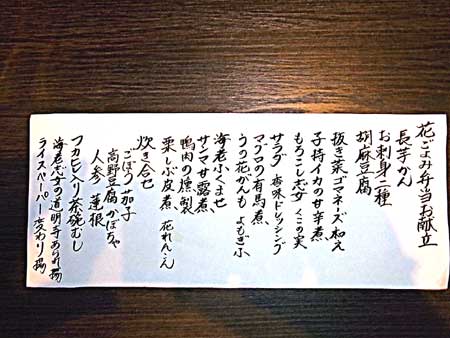 花ごよみ弁当お献立
長芋かん
お刺身二種
胡麻豆腐
抜き菜ゴマネーズ和え
子持イカの甘辛煮
もろこし くこの実
サラダ 香味ドレッシング
マグロの有馬煮
うの花かんも よもぎ
海老小くるま
サンマ甘露煮
鴨肉の燻製
栗しぶ皮煮 花れんこん
炊き合せ
ごぼう 茄子
高野豆腐 かぼちゃ
人参 蓮根
フカヒレ入り茶碗むし
海老の道明寺あられ揚
ライスペーパー変わり揚